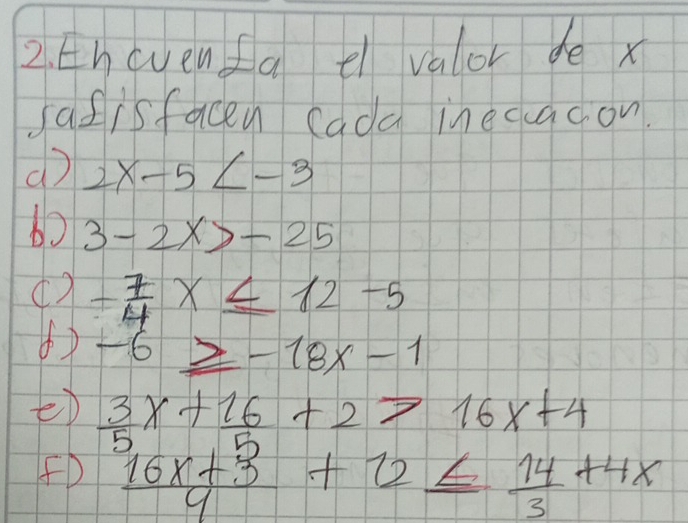 2. Encuenta el valor de x
satisfacen cada inecuacion.
a) 2x-5 < -3
b) 3-2x > -25
c) -7/4 x ≤ 12-5
d) -6 ≥ -18x-1
e) 3/5 x + 16/5 + 2 > 16x+4
f) (16x+3)/9 + 12 ≤ 14/3 + 4x